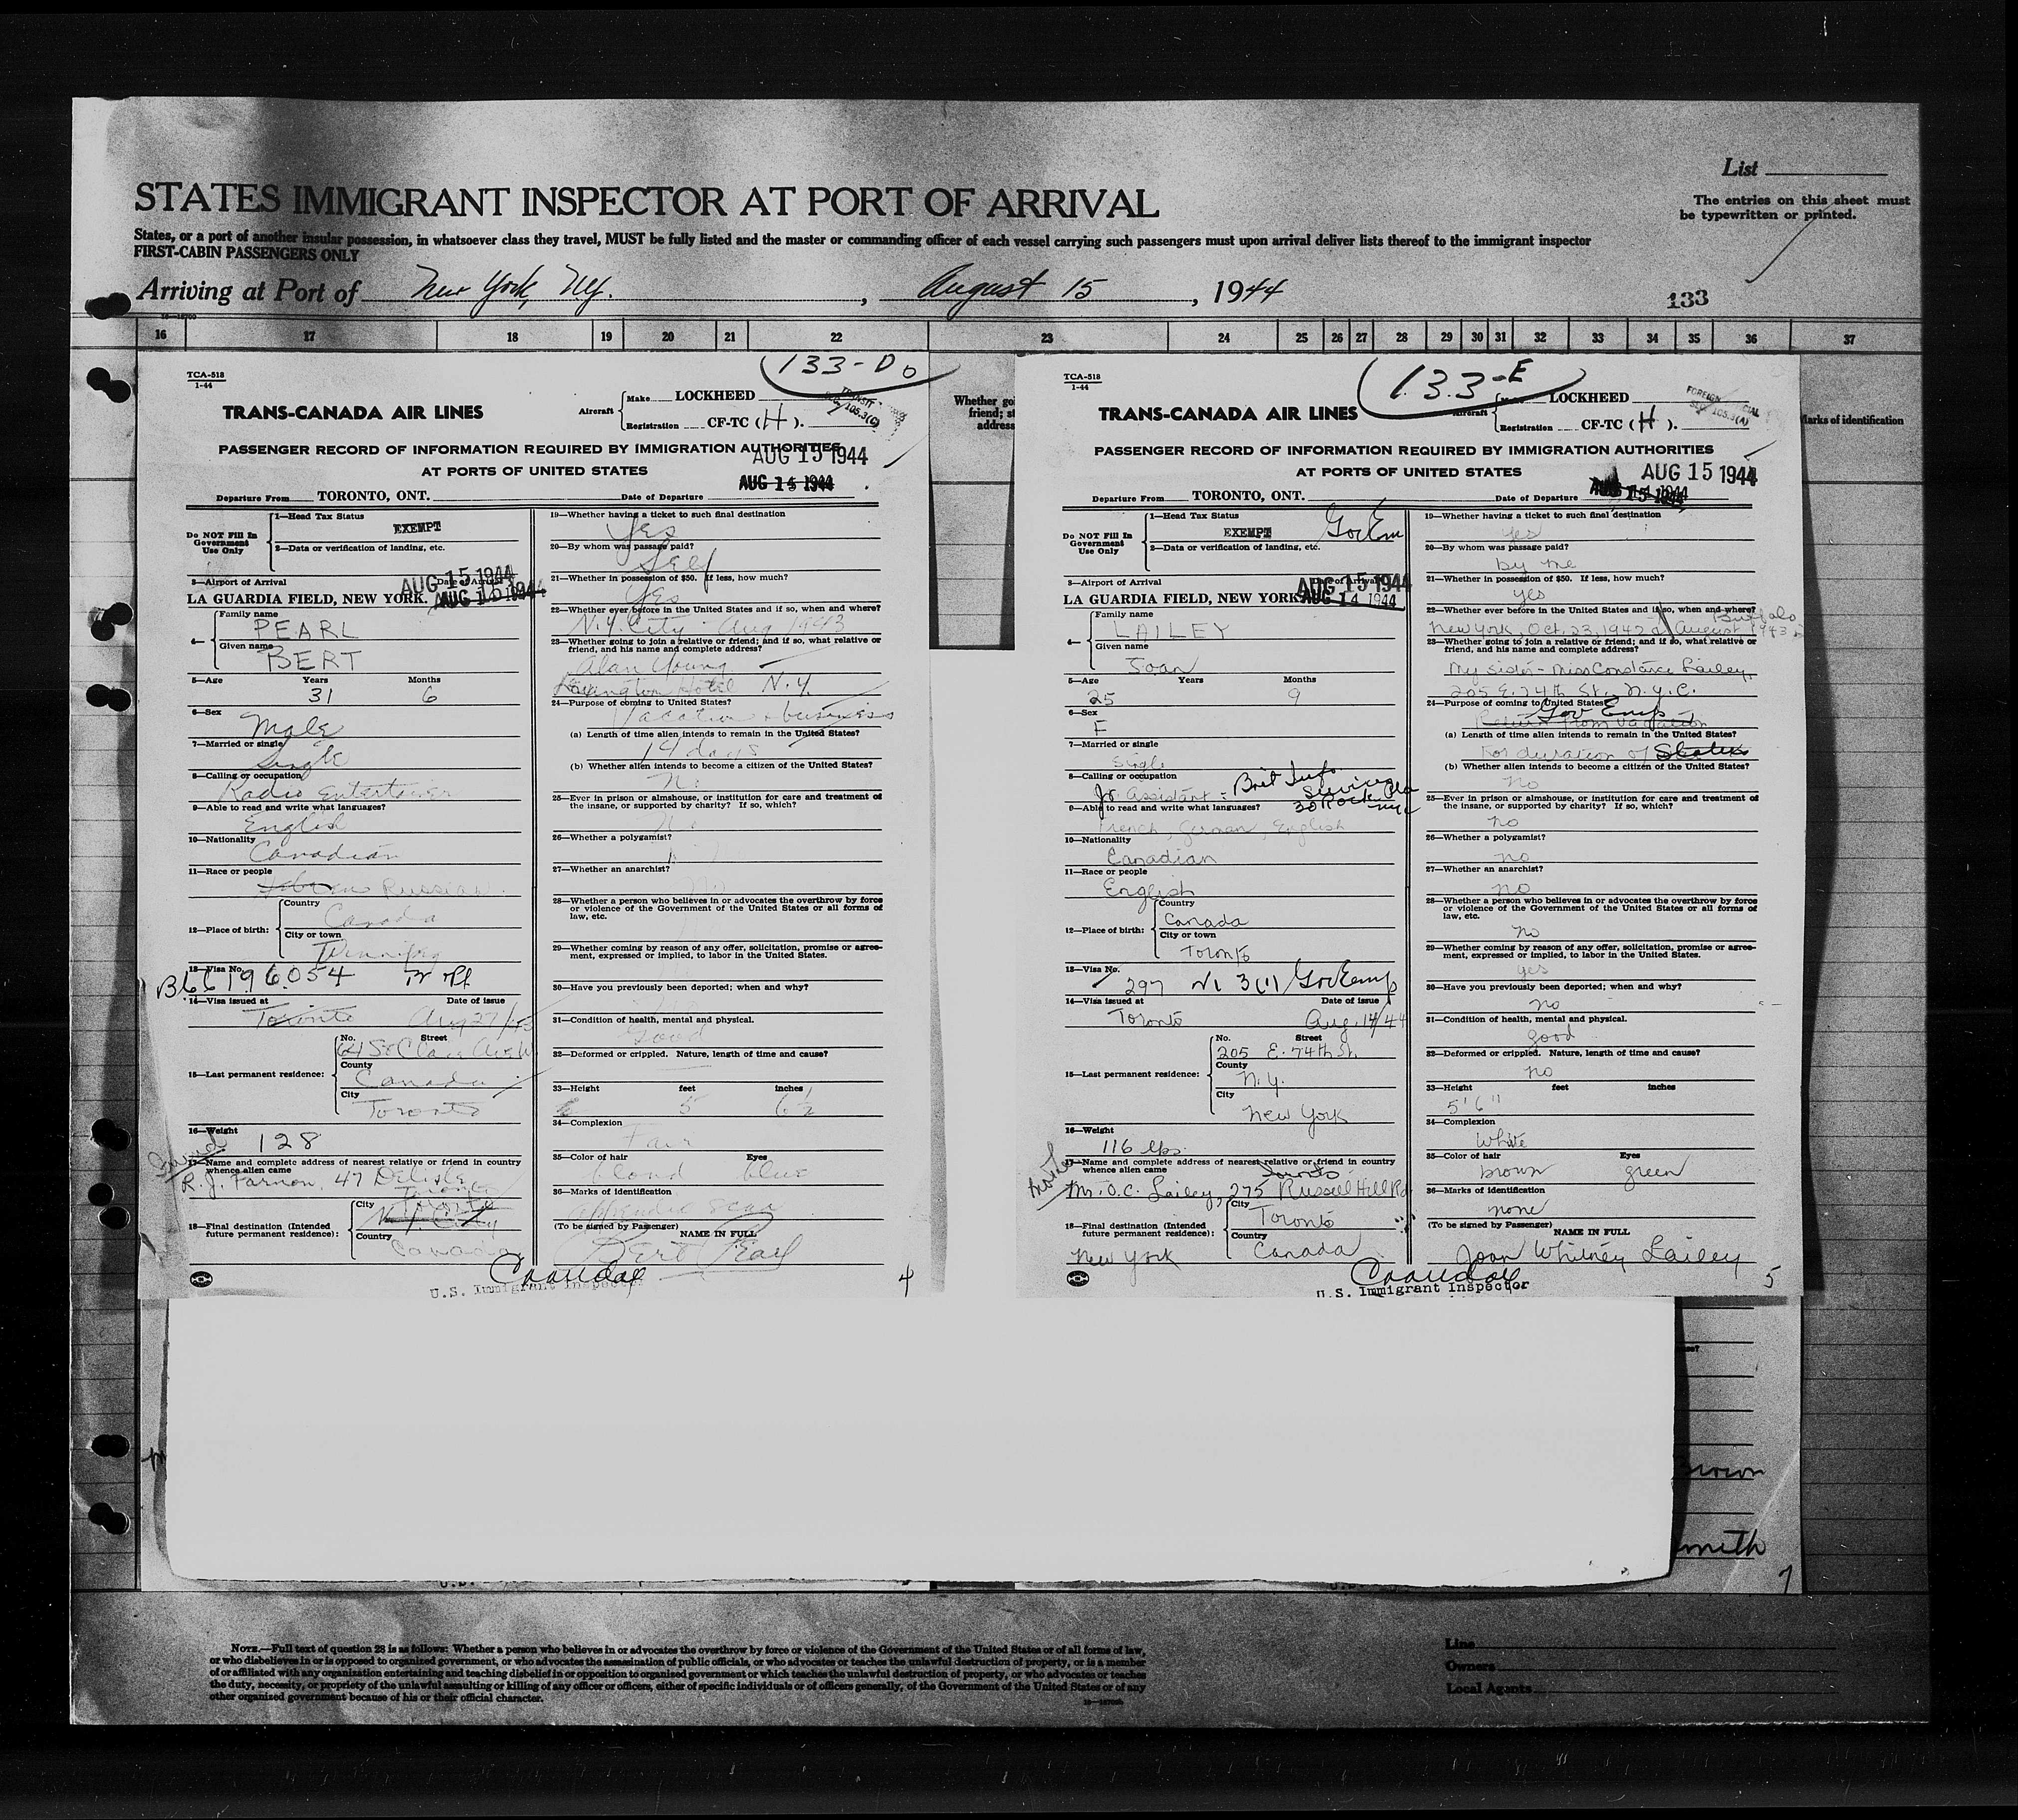 List
STATES IMMIGRANT INSPECTOR AT PORT OF ARRIVAL
The entries on this sheet must
be typewritten or printed.
States, or a port of another insular possession, in whatsoever class they travel, MUST be fully listed and the master or commanding officer of each vessel carrying such passengers must upon arrival deliver lists thereof to the immigrant inspector
FIRST-CABIN PASSENGERS ONLY
Arriving at Port of New York, NY. , August 15 , 1944
133
16 17 18 19 20 21 22 23 24 25 26 27 28 29 30 31 32 33 34 35 36 37
133-D
TCA-518
1-44
TRANS-CANADA AIR LINES
Aircraft Make LOCKHEED
Registration CF-TC (H).
PASSENGER RECORD OF INFORMATION REQUIRED BY IMMIGRATION AUTHORITIES
AT PORTS OF UNITED STATES
AUG 15 1944
AUG 14 1944
Departure From TORONTO, ONT. Date of Departure
Do NOT Fill In
Government
Use Only
1—Head Tax Status
EXEMPT
2—Data or verification of landing, etc.
3—Airport of Arrival Date of Arrival
AUG 15 1944
LA GUARDIA FIELD, NEW YORK. AUG 15 1944
4— Family name
PEARL
Given name
BERT
5—Age Years Months
31 6
6—Sex
Male
7—Married or single
Single
8—Calling or occupation
Radio Entertainer
9—Able to read and write what languages?
English
10—Nationality
Canadian
11—Race or people
Hebrew Russian
12—Place of birth: Country
Canada
City or town
Winnipeg
13—Visa No.
B66196054
14—Visa issued at Date of issue
Toronto Aug 27/43
15—Last permanent residence: No. Street
64 St Clair Ave W
County
Canada
City
Toronto
16—Weight
128
Friend
17—Name and complete address of nearest relative or friend in country
whence alien came
R. J. Farnon, 47 Delisle
Toronto
18—Final destination (Intended
future permanent residence):
City
Toronto
N.Y. City
Country
Canada
19—Whether having a ticket to such final destination
Yes
20—By whom was passage paid?
Self
21—Whether in possession of $50. If less, how much?
Yes
22—Whether ever before in the United States and if so, when and where?
N.Y. City Aug 1943
23—Whether going to join a relative or friend; and if so, what relative or
friend, and his name and complete address?
Alan Young
Lexington Hotel N.Y.
24—Purpose of coming to United States?
Vacation & business
(a) Length of time alien intends to remain in the United States?
14 days
(b) Whether alien intends to become a citizen of the United States?
No
25—Ever in prison or almshouse, or institution for care and treatment of
the insane, or supported by charity? If so, which?
No
26—Whether a polygamist?
27—Whether an anarchist?
No
28—Whether a person who believes in or advocates the overthrow by force
or violence of the Government of the United States or all forms of
law, etc.
29—Whether coming by reason of any offer, solicitation, promise or agree-
ment, expressed or implied, to labor in the United States.
30—Have you previously been deported; when and why?
31—Condition of health, mental and physical.
Good
32—Deformed or crippled. Nature, length of time and cause?
33—Height feet inches
5 6½
34—Complexion
Fair
35—Color of hair Eyes
blond blue
36—Marks of identification
appendix scar
(To be signed by Passenger) NAME IN FULL
Bert Pearl
U.S. Immigrant Inspector
4
Whether goi
friend; st
address
133-E
TCA-518
1-44
TRANS-CANADA AIR LINES
Aircraft Make LOCKHEED
Registration CF-TC (H).
FOREIGN OFFICIAL
SEC 105.3(A)
PASSENGER RECORD OF INFORMATION REQUIRED BY IMMIGRATION AUTHORITIES
AT PORTS OF UNITED STATES
AUG 15 1944
Departure From TORONTO, ONT. Date of Departure
Do NOT Fill In
Government
Use Only
1—Head Tax Status
EXEMPT Gov Em
2—Data or verification of landing, etc.
3—Airport of Arrival Date of Arrival
AUG 15 1944
LA GUARDIA FIELD, NEW YORK. AUG 14 1944
4— Family name
LAILEY
Given name
Joan
5—Age Years Months
25 9
6—Sex
F
7—Married or single
Single
8—Calling or occupation
Jr Assistant - Brit Info Services
30 Rock Pla
NYC
9—Able to read and write what languages?
French, German, English
10—Nationality
Canadian
11—Race or people
English
12—Place of birth: Country
Canada
City or town
Toronto
13—Visa No.
297 3(1) Gov Emp
14—Visa issued at Date of issue
Toronto Aug. 14/44
15—Last permanent residence: No. Street
205 E. 74th St.
County
N.Y.
City
New York
16—Weight
116 lbs.
17—Name and complete address of nearest relative or friend in country
whence alien came
Toronto
Mr. O.C. Lailey, 275 Russell Hill Rd
18—Final destination (Intended
future permanent residence):
New York
City
Toronto
Country
Canada
19—Whether having a ticket to such final destination
Yes
20—By whom was passage paid?
by me
21—Whether in possession of $50. If less, how much?
yes
22—Whether ever before in the United States and if so, when and where?
Buffalo
New York, Oct. 23, 1942 August 1943
23—Whether going to join a relative or friend; and if so, what relative or
friend, and his name and complete address?
My sister - Miss Constance Lailey,
205 E. 74th St., N.Y.C.
24—Purpose of coming to United States?
Gov Emp
Return from vacation
(a) Length of time alien intends to remain in the United States?
For duration of Status
(b) Whether alien intends to become a citizen of the United States?
No
25—Ever in prison or almshouse, or institution for care and treatment of
the insane, or supported by charity? If so, which?
no
26—Whether a polygamist?
no
27—Whether an anarchist?
no
28—Whether a person who believes in or advocates the overthrow by force
or violence of the Government of the United States or all forms of
law, etc.
no
29—Whether coming by reason of any offer, solicitation, promise or agree-
ment, expressed or implied, to labor in the United States.
yes
30—Have you previously been deported; when and why?
no
31—Condition of health, mental and physical.
good
32—Deformed or crippled. Nature, length of time and cause?
no
33—Height feet inches
5'6"
34—Complexion
White
35—Color of hair Eyes
brown green
36—Marks of identification
none
(To be signed by Passenger) NAME IN FULL
Joan Whitney Lailey
U.S. Immigrant Inspector
5
Marks of identification
Brown
mith
7
NOTE.—Full text of question 28 is as follows: Whether a person who believes in or advocates the overthrow by force or violence of the Government of the United States or of all forms of law,
or who disbelieves in or is opposed to organized government, or who advocates the assassination of public officials, or who advocates or teaches the unlawful destruction of property, or is a member
of or affiliated with any organization entertaining and teaching disbelief in or opposition to organized government or which teaches the unlawful destruction of property, or who advocates or teaches
the duty, necessity, or propriety of the unlawful assaulting or killing of any officer or officers, either of specific individuals or of officers generally, of the Government of the United States or of any
other organized government because of his or their official character.
Line
Owners
Local Agents